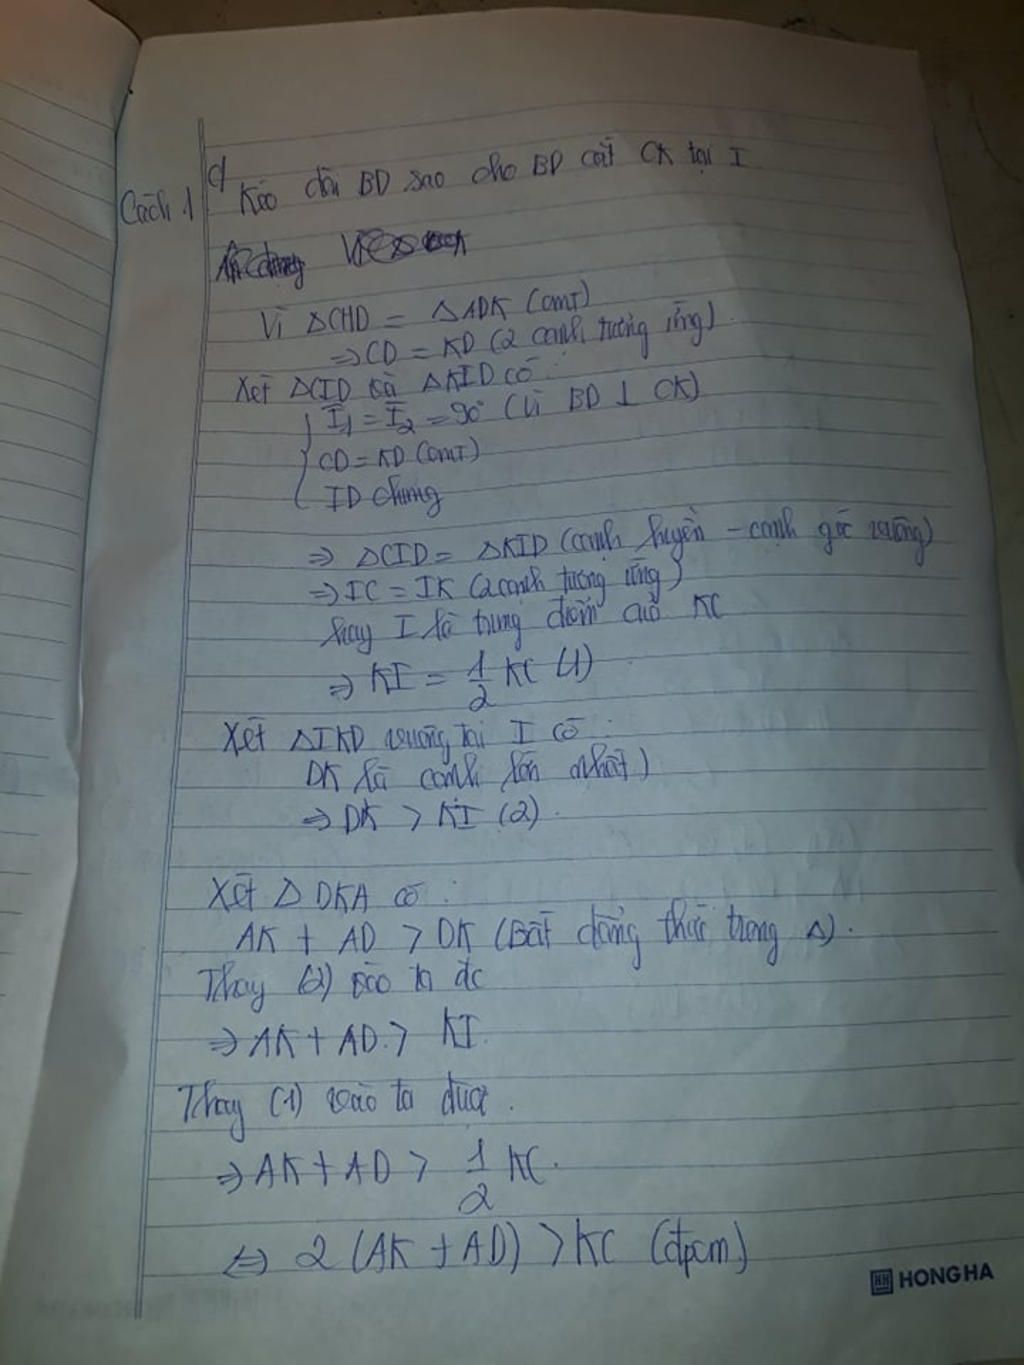 d
Cách 1 Kéo dài BD sao cho BD cắt CK tại I
Vì △CHD = △ADK (cmt)
⇒ CD = KD (2 cạnh tương ứng)
Xét △CID và △KID có
I₁ = I₂ = 90° (vì BD ⊥ CK)
CD = KD (cmt)
ID chung
⇒ △CID = △KID (cạnh huyền - cạnh góc vuông)
⇒ IC = IK (2 cạnh tương ứng)
hay I là trung điểm của KC
⇒ KI = 1/2 KC (1)
Xét △IKD vuông tại I có :
DK là cạnh lớn nhất)
⇒ DK > KI (2).
Xét △ DKA có :
AK + AD > DK (Bất đẳng thức trong △).
Thay (2) vào ta đc
⇒ AK + AD > KI.
Thay (1) vào ta được.
⇒ AK + AD > 1/2 KC.
⇔ 2 (AK + AD) > KC (đpcm)
HONG HA